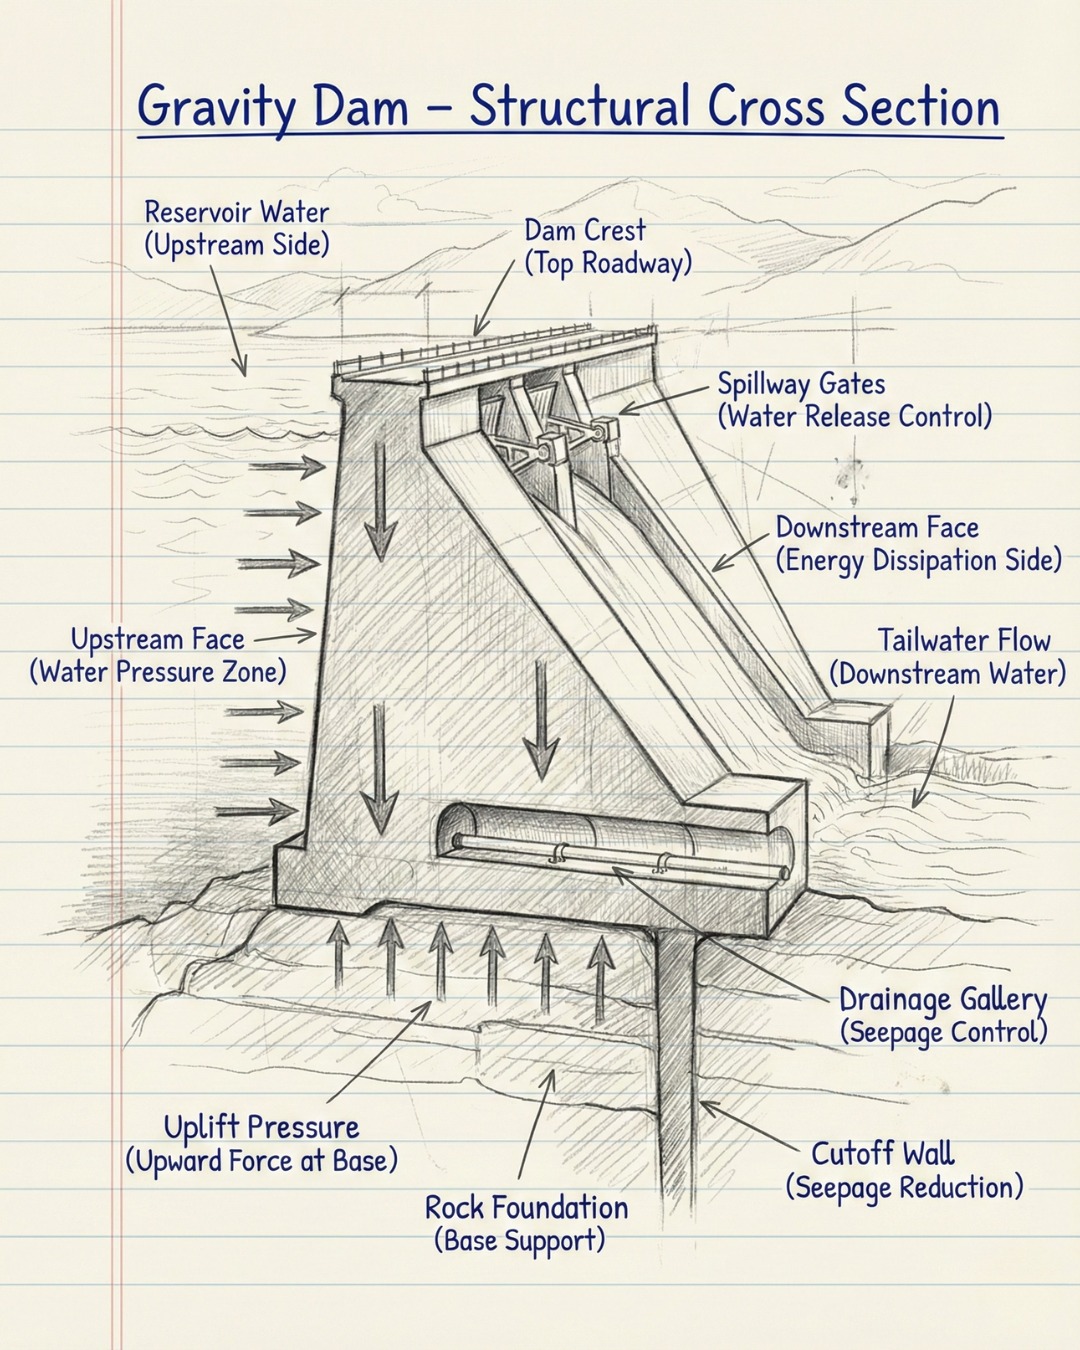 Gravity Dam – Structural Cross Section
Reservoir Water
(Upstream Side)
Dam Crest
(Top Roadway)
Spillway Gates
(Water Release Control)
Downstream Face
(Energy Dissipation Side)
Upstream Face
(Water Pressure Zone)
Tailwater Flow
(Downstream Water)
Drainage Gallery
(Seepage Control)
Uplift Pressure
(Upward Force at Base)
Cutoff Wall
(Seepage Reduction)
Rock Foundation
(Base Support)